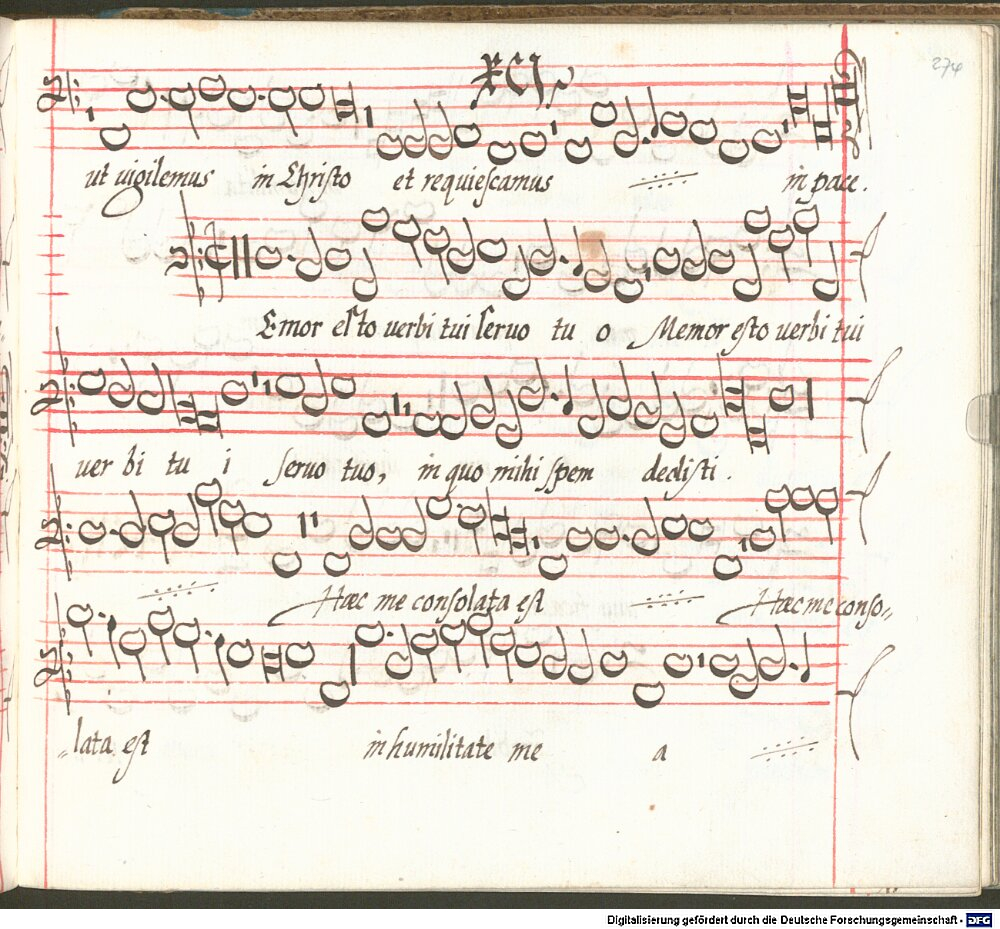 XCI
274
ut uigilemus in Christo et requiescamus in pace.
Emor esto uerbi tui seruo tu o Memor esto uerbi tui
uer bi tu i seruo tuo, in quo mihi spem dedisti.
Hæc me consolata est Hæc me conso„
„lata est in humilitate me a
Digitalisierung gefördert durch die Deutsche Forschungsgemeinschaft - DFG